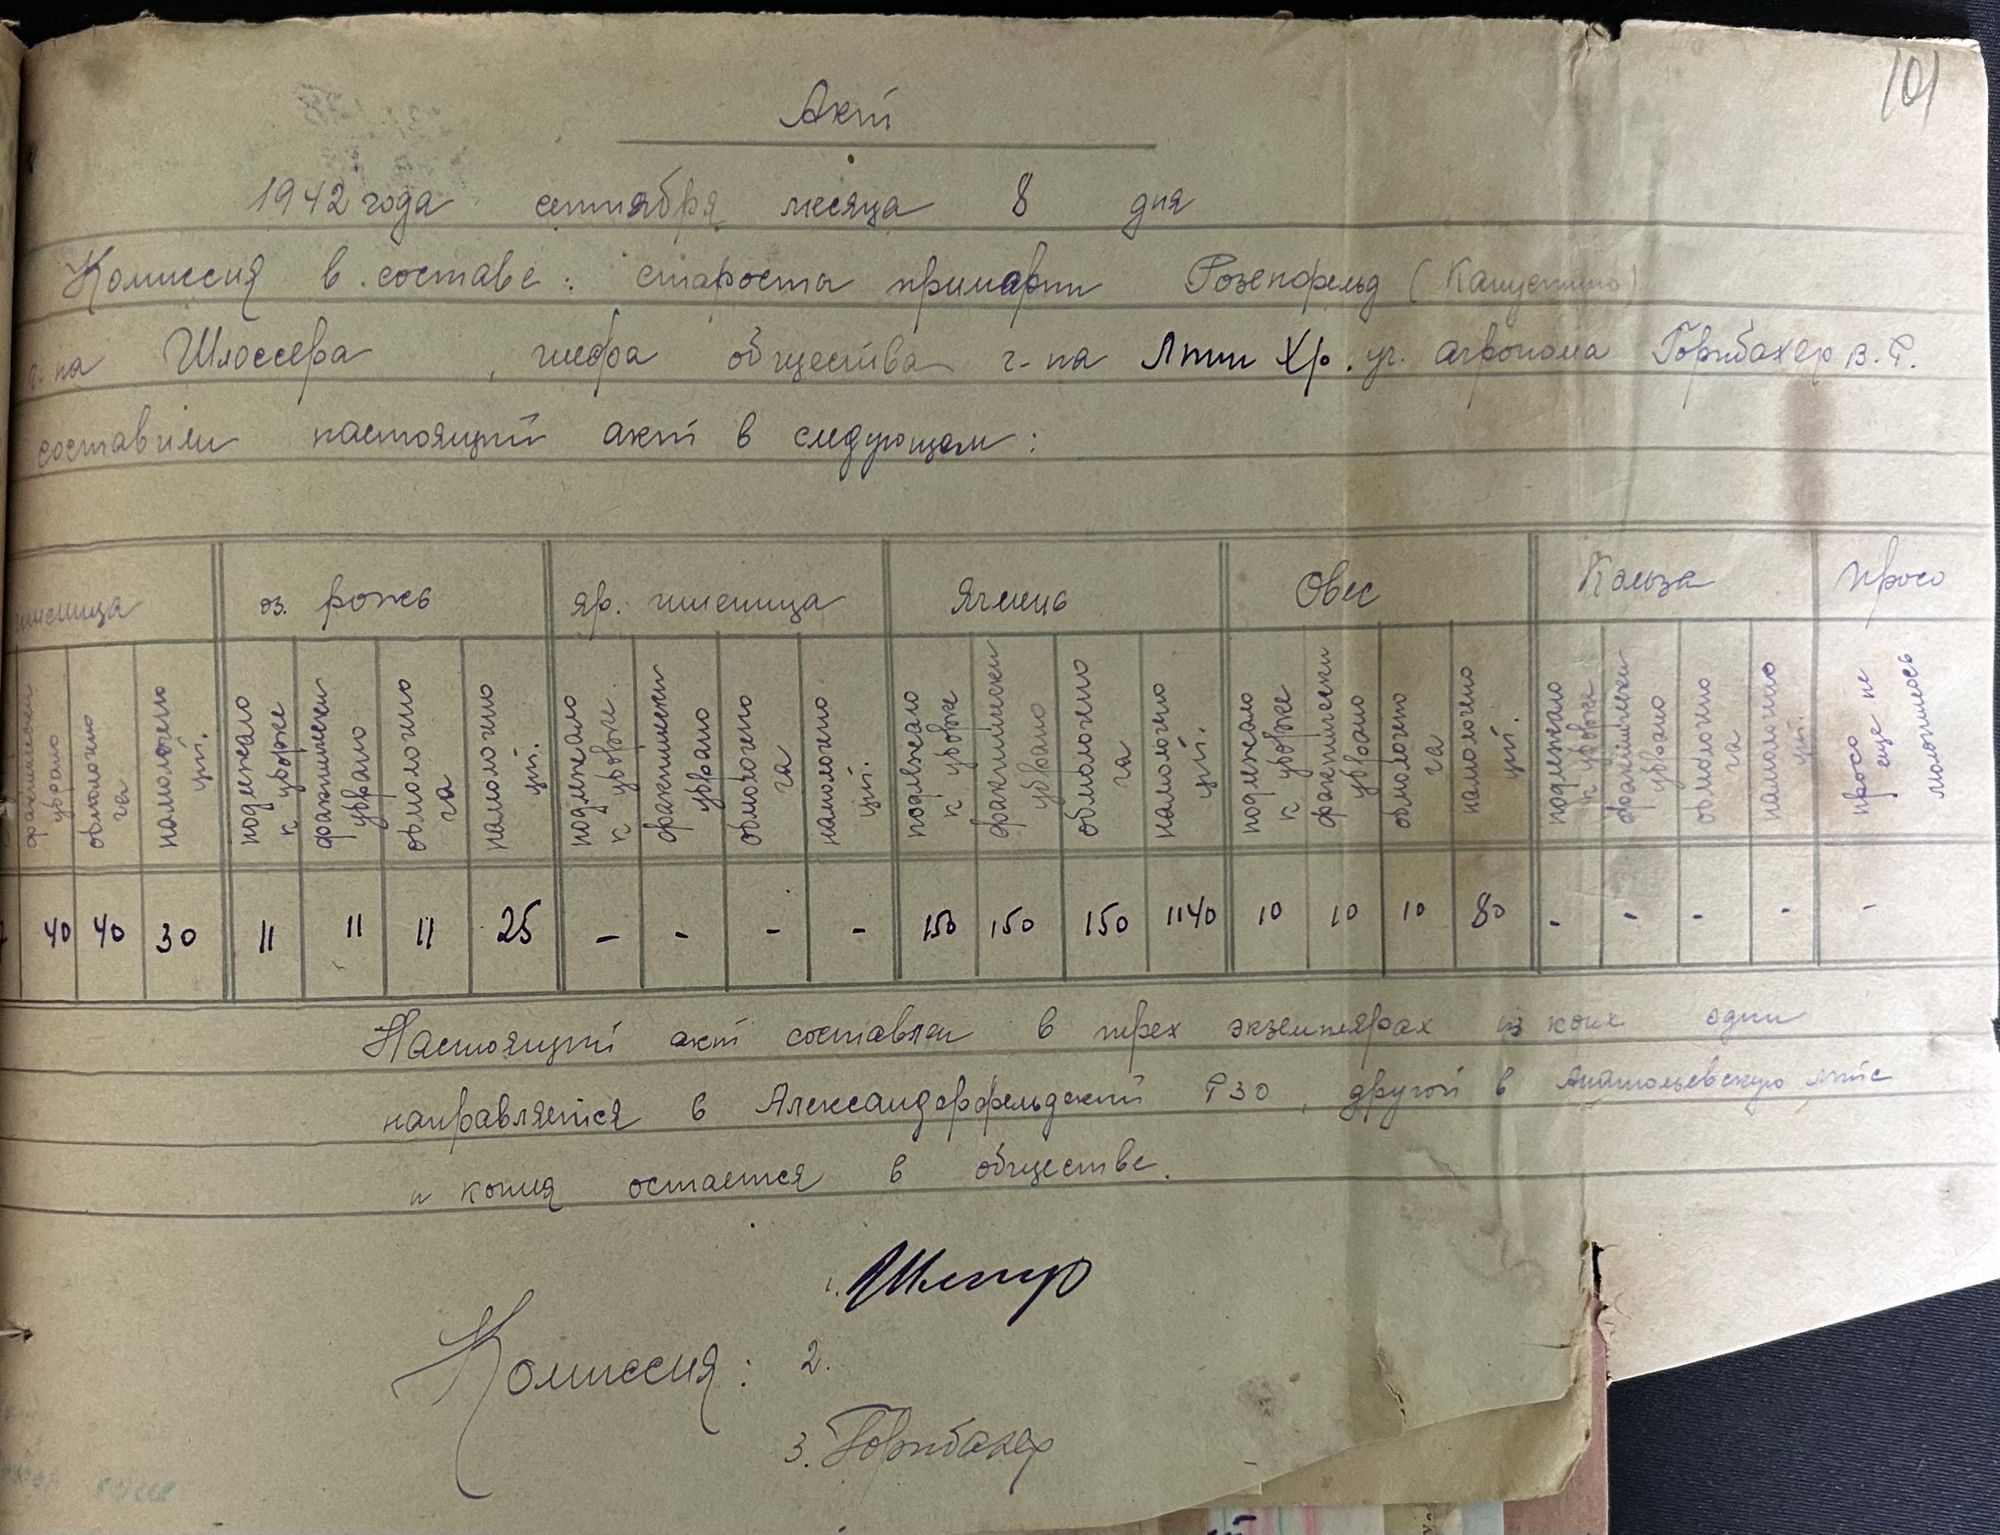 101
Акт
1942 года сентября месяца 8 дня
Комиссия в составе: старосты примарии Розенфельд (Капустино)
г-на Шлоссера, шефра общества г-на Хр. уч. агронома Горнбахер В. Г.
составили настоящий акт в следующем:
пшеница оз. рожь яр. пшеница Ячмень Овес Кольза просо
фактически убрано
обмолочено га
намолочено цнт.
подлежало к уборке
фактически убрано
обмолочено га
намолочено цнт.
подлежало к уборке
фактически убрано
обмолочено га
намолочено цнт.
подлежало к уборке
фактически убрано
обмолочено га
намолочено цнт.
подлежало к уборке
фактически убрано
обмолочено га
намолочено цнт.
подлежало к уборке
фактически убрано
обмолочено га
намолочено цнт.
просо еще не молотилось
40 40 30 11 11 11 25 - - - - 150 150 150 1140 10 10 10 80 - - - - -
Настоящий акт составлен в трех экземплярах из коих один
направляется в Александерфельдский РЗО, другой в Анатольевскую мтс
и копия остается в обществе.
1.
Комиссия: 2.
3. Горнбахер